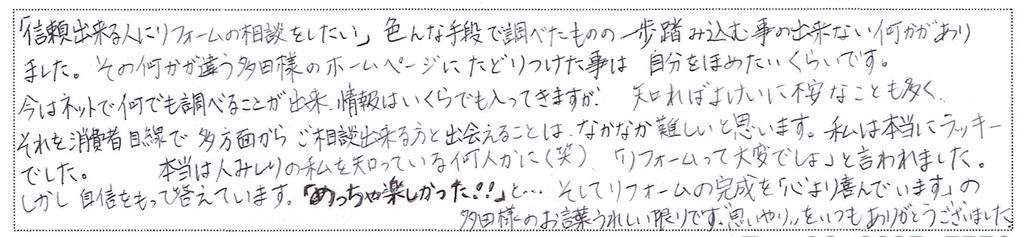 「信頼出来る人にリフォームの相談をしたい」 色んな手段で調べたものの 一歩踏み込む事の出来ない何かがあり
ました。その何かが違う多田様のホームページにたどりつけた事は 自分をほめたいくらいです。
今はネットで何でも調べることが出来、情報はいくらでも入ってきますが、 知ればよけいに不安なことも多く、
それを消費者目線で 多方面から ご相談出来る方と出会えることは、なかなか難しいと思います。私は本当にラッキー
でした。 本当は人みしりの私を知っている何人かに(笑)、「リフォームって大変でしょ」と言われました。
しかし 自信をもって答えています。「めっちゃ楽しかった!!」と… そしてリフォームの完成を「心より喜んでいます」の
多田様のお言葉うれしい限りです。"思いやり"をいつもありがとうございました